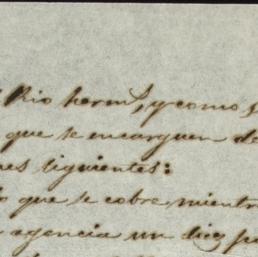 Rio haran, y como
que se encarguen de
nes siguientes:
lo que se cobre mientr
agencia un diez po